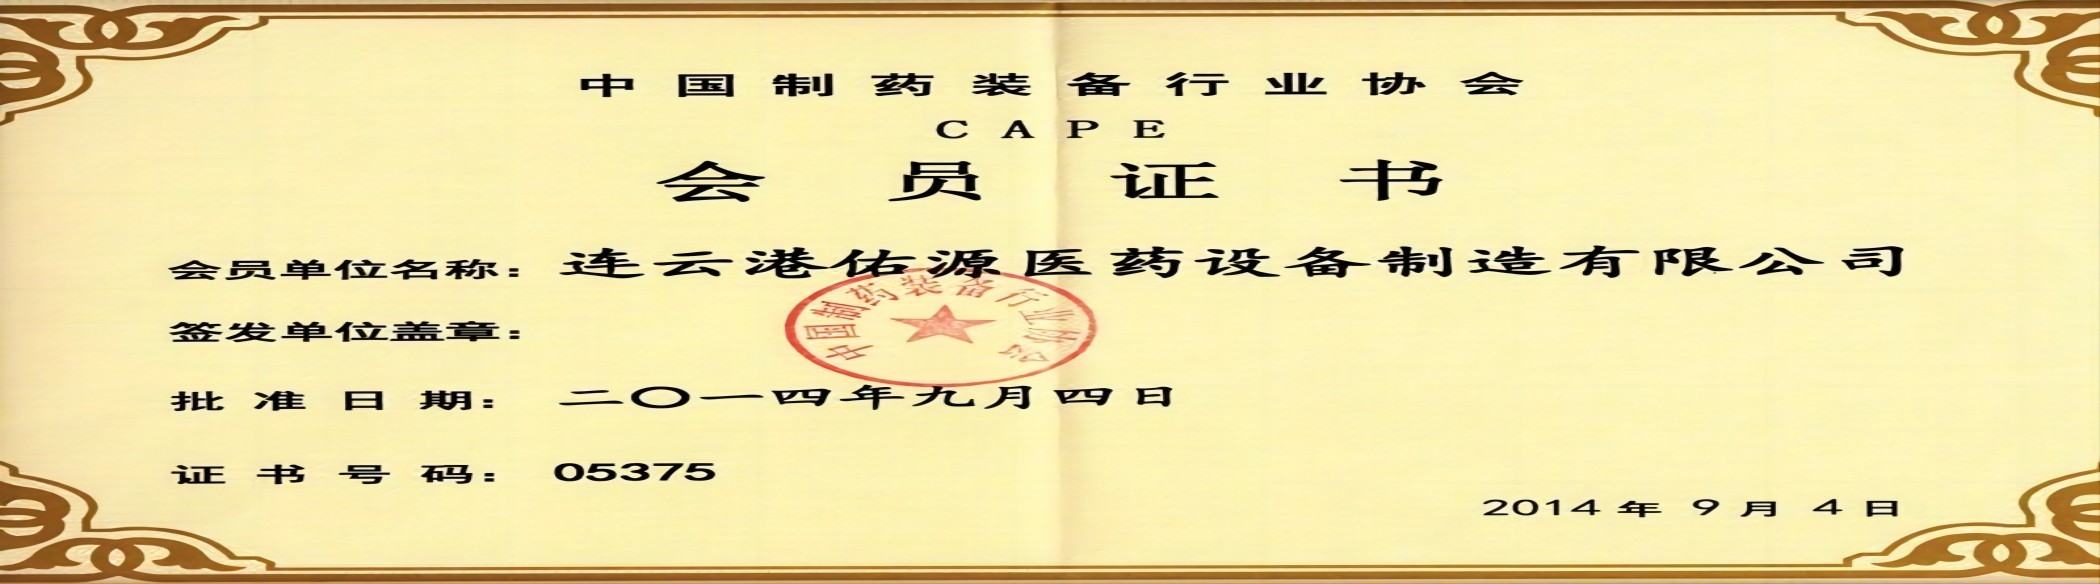 中国制药装备行业协会
CAPE
会员证书
会员单位名称：连云港佑源医药设备制造有限公司
中国制药装备行业协会
签发单位盖章：
批准日期：二〇一四年九月四日
证书号码：05375
2014年9月4日